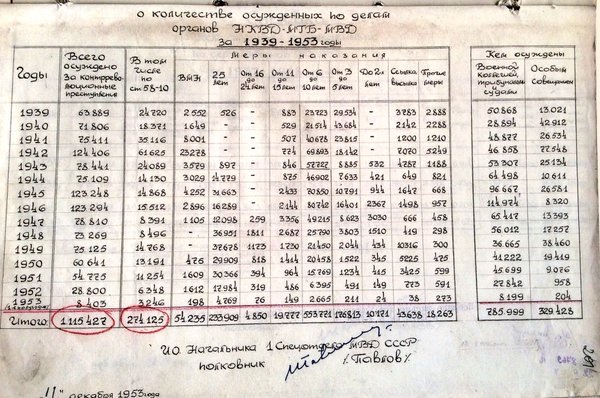 о количестве осужденных по делам
органов НКВД-МГБ-МВД
за 1939-1953 годы
Годы Всего осуждено за контрреволюционные преступления В том числе по ст. 58-10 Меры наказания Кем осуждены
ВМН 25 лет От 16 до 24 лет От 11 до 15 лет От 6 до 10 лет От 3 до 5 лет До 2х лет Ссылка высылка Прочие меры Военной коллегией, трибуналами судами Особым совещанием
1939 63.889 24.720 2552 526 - 883 23723 29.534 - 3783 2888 50.868 13.021
1940 71.806 18.371 1649 - - 529 21.514 43.684 - 2142 2288 28.894 42.912
1941 75.411 35.116 8001 - - 507 40.678 23.815 - 1200 1210 48.877 26.534
1942 124.406 61.625 23278 - - 774 69.893 18142 - 7070 5249 46.858 77.548
1943 78.441 24.089 3579 897 - 846 57727 8.885 532 4787 1188 53.307 25.134
1944 75.109 14.130 3029 14.779 - 875 46902 7.633 421 649 821 64.498 10.611
1945 123.248 14.868 4252 31.663 - 2433 70.850 10.791 944 1647 668 96.667 26.581
1946 123.294 15.512 2896 16.289 - 2144 80742 16.401 2367 1498 957 114.974 8.320
1947 78.810 8.391 1105 12.098 259 3356 49.215 8.623 3030 666 458 65.417 13.393
1948 73.269 8.496 - 36951 1811 2687 25.790 3803 1510 419 298 56.012 17.257
1949 75.125 14.768 - 37678 1173 1730 21.450 2044 434 10316 300 36.665 38.460
1950 60.641 13.191 475 29909 818 1414 20.458 1522 345 5225 475 41.222 19.419
1951 54.775 11.254 1609 30.366 394 964 15.769 1234 415 3425 599 45.699 9.076
1952 28.800 6.348 1612 17.984 319 486 6.395 491 149 773 591 27.842 958
1953 8.403 3.246 198 4.769 76 149 2.665 211 24 38 273 8.199 204
Итого: 1.115.427 274.125 54.235 233909 4.850 19.777 553.771 176813 10.171 43638 18263 785.999 329.428
ИО Начальника 1 Спецотдела МВД СССР
полковник /Павлов/
"11" декабря 1953 года